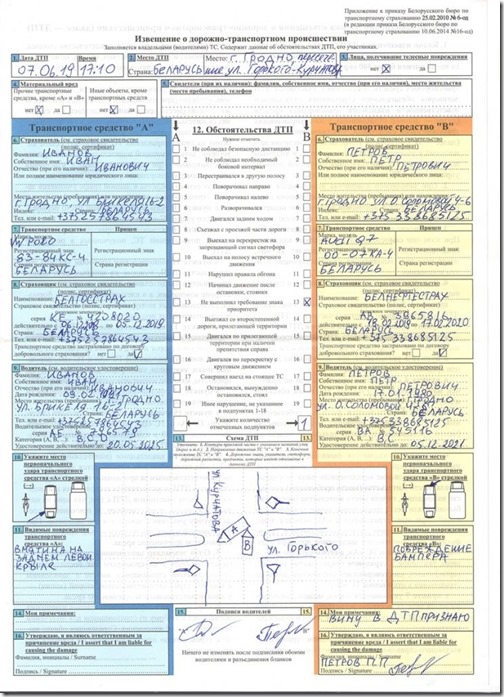 Приложение к приказу Белорусского бюро по
транспортному страхованию 25.02.2010 № 6-од
(в редакции приказа Белорусского бюро по
транспортному страхованию 10.06.2014 №16-од)
Извещение о дорожно-транспортном происшествии
Заполняется владельцами (водителями) ТС. Содержит данные об обстоятельствах ДТП, его участниках.
1. Дата ДТП Время
07.06.19 17:10
2. Место ДТП Место: г. ГРОДНО, пересеч
Страна: БЕЛАРУСЬ ние ул. Горького-Курчатова
3. Лица, получившие телесные повреждения
нет X да
4. Материальный вред
Прочие транспортные средства, кроме «А» и «В»
нет X да
Иные объекты, кроме транспортных средств
нет X да
5. Свидетели (при их наличии): фамилия, собственное имя, отчество (при его наличии), место жительства
(место пребывания), телефон
Транспортное средство "А"
6. Страхователь (см. страховое свидетельство
(полис, сертификат)
Фамилия: ИВАНОВ
Собственное имя: ИВАН
Отчество (при его наличии): ИВАНОВИЧ
Или полное наименование юридического лица:
Место жительства (место пребывания):
Индекс: Страна: БЕЛАРУСЬ
Тел. или e-mail:
7. Транспортное средство
Транспорт Прицеп
Регистрационный знак
Страна регистрации
БЕЛАРУСЬ
8. Страховщик (см. страховое свидетельство
(полис, сертификат)
Наименование: БЕЛГОССТРАХ
Страховое свидетельство (полис, сертификат)
серия КЕ № 4208020
действительно с 06.12.2018 по 05.12.2019
Страна: БЕЛАРУСЬ
Тел. или e-mail:
Транспортное средство застраховано по договору
добровольного страхования? нет да
9. Водитель (см. водительское удостоверение)
Фамилия: ИВАНОВ
Собственное имя: ИВАН
Отчество (при его наличии): ИВАНОВИЧ
Страна: БЕЛАРУСЬ
Тел. или e-mail:
Категория (А, В, ...): В, С, D
Удостоверение действительно до: 20.05.2025
10. Укажите место первоначального удара транспортного средства «А» стрелкой (→)
11. Видимые повреждения транспортного средства «А»:
ВМЯТИНА НА
ЗАДНЕМ ЛЕВОМ
КРЫЛЕ
14. Мои примечания:
16. Утверждаю, я являюсь ответственным за
причинение вреда / I assert that I am liable for
causing the damage
Фамилия, инициалы / Surname
Подпись / Signature
А 12. Обстоятельства ДТП В
Нужное отметить
1 Не соблюдал безопасную дистанцию
2 Не соблюдал необходимый боковой интервал
3 Перестраивался в другую полосу
4 Поворачивал направо
5 Поворачивал налево
6 Разворачивался
7 Двигался задним ходом
8 Съезжал с проезжей части дороги
9 Выехал на перекресток на запрещающий сигнал светофора
10 Выехал на полосу встречного движения
11 Нарушил правила обгона
12 Начинал движение после остановки, стоянки
13 Не выполнил требование знака приоритета X
14 Выезжал со второстепенной дороги, прилегающей территории
15 Двигался по прилегающей территории при наличии препятствия справа
16 Двигался по перекрестку с круговым движением
17 Совершил наезд на стоящее ТС
18 Остановился, вынужденно остановился, стоял
19 Иное нарушение, не указанное в подпунктах 1-18
Укажите количество отмеченных подпунктов 1
13. Схема ДТП 13.
ул КУРЧАТОВА
А
В
УЛ. ГОРЬКОГО
15. Подписи водителей 15.
Ничего не изменять после подписания обоими
водителями и разъединения бланков
Транспортное средство "В"
6. Страхователь (см. страховое свидетельство
(полис, сертификат)
Фамилия: ПЕТРОВ
Собственное имя: ПЕТР
Отчество (при его наличии): ПЕТРОВИЧ
Или полное наименование юридического лица:
Место жительства (место пребывания):
Индекс: Страна: БЕЛАРУСЬ
Тел. или e-mail: +375 338685125
7. Транспортное средство
Транспорт Прицеп
Марка, модель
AUDI Q7
Регистрационный знак
Страна регистрации
БЕЛАРУСЬ
8. Страховщик (см. страховое свидетельство
(полис, сертификат)
Наименование: БЕЛНЕФТЕСТРАХ
Страховое свидетельство (полис, сертификат)
серия АВ № 3865816
действительно с 18.02.2019 по 17.02.2020
Страна: БЕЛАРУСЬ
Тел. или e-mail: +375 338685125
Транспортное средство застраховано по договору
добровольного страхования? нет да
9. Водитель (см. водительское удостоверение)
Фамилия: ПЕТРОВ
Собственное имя: ПЕТР
Отчество (при его наличии): ПЕТРОВИЧ
Страна: БЕЛАРУСЬ
Категория (А, В, ...): ВС
Удостоверение действительно до: 05.12.2021
10. Укажите место первоначального удара транспортного средства «В» стрелкой (→)
11. Видимые повреждения транспортного средства «В»:
ПОВРЕЖДЕНИЕ
БАМПЕРА
14. Мои примечания:
ВИНУ В ДТП ПРИЗНАЮ
16. Утверждаю, я являюсь ответственным за
причинение вреда / I assert that I am liable for
causing the damage
Фамилия, инициалы / Surname
ПЕТРОВ П.П
Подпись / Signature